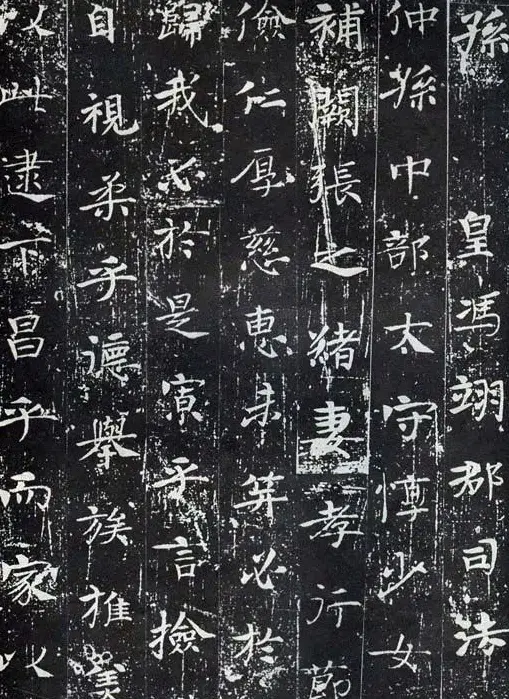 孫 皇馮翊郡司法
仲孫中部太守惇少女
補闕張之緒妻孝行節
儉仁厚慈惠未笄必於
歸我必於是寅乎言撿
自視柔乎德舉族推美
以此逮下昌乎而家以